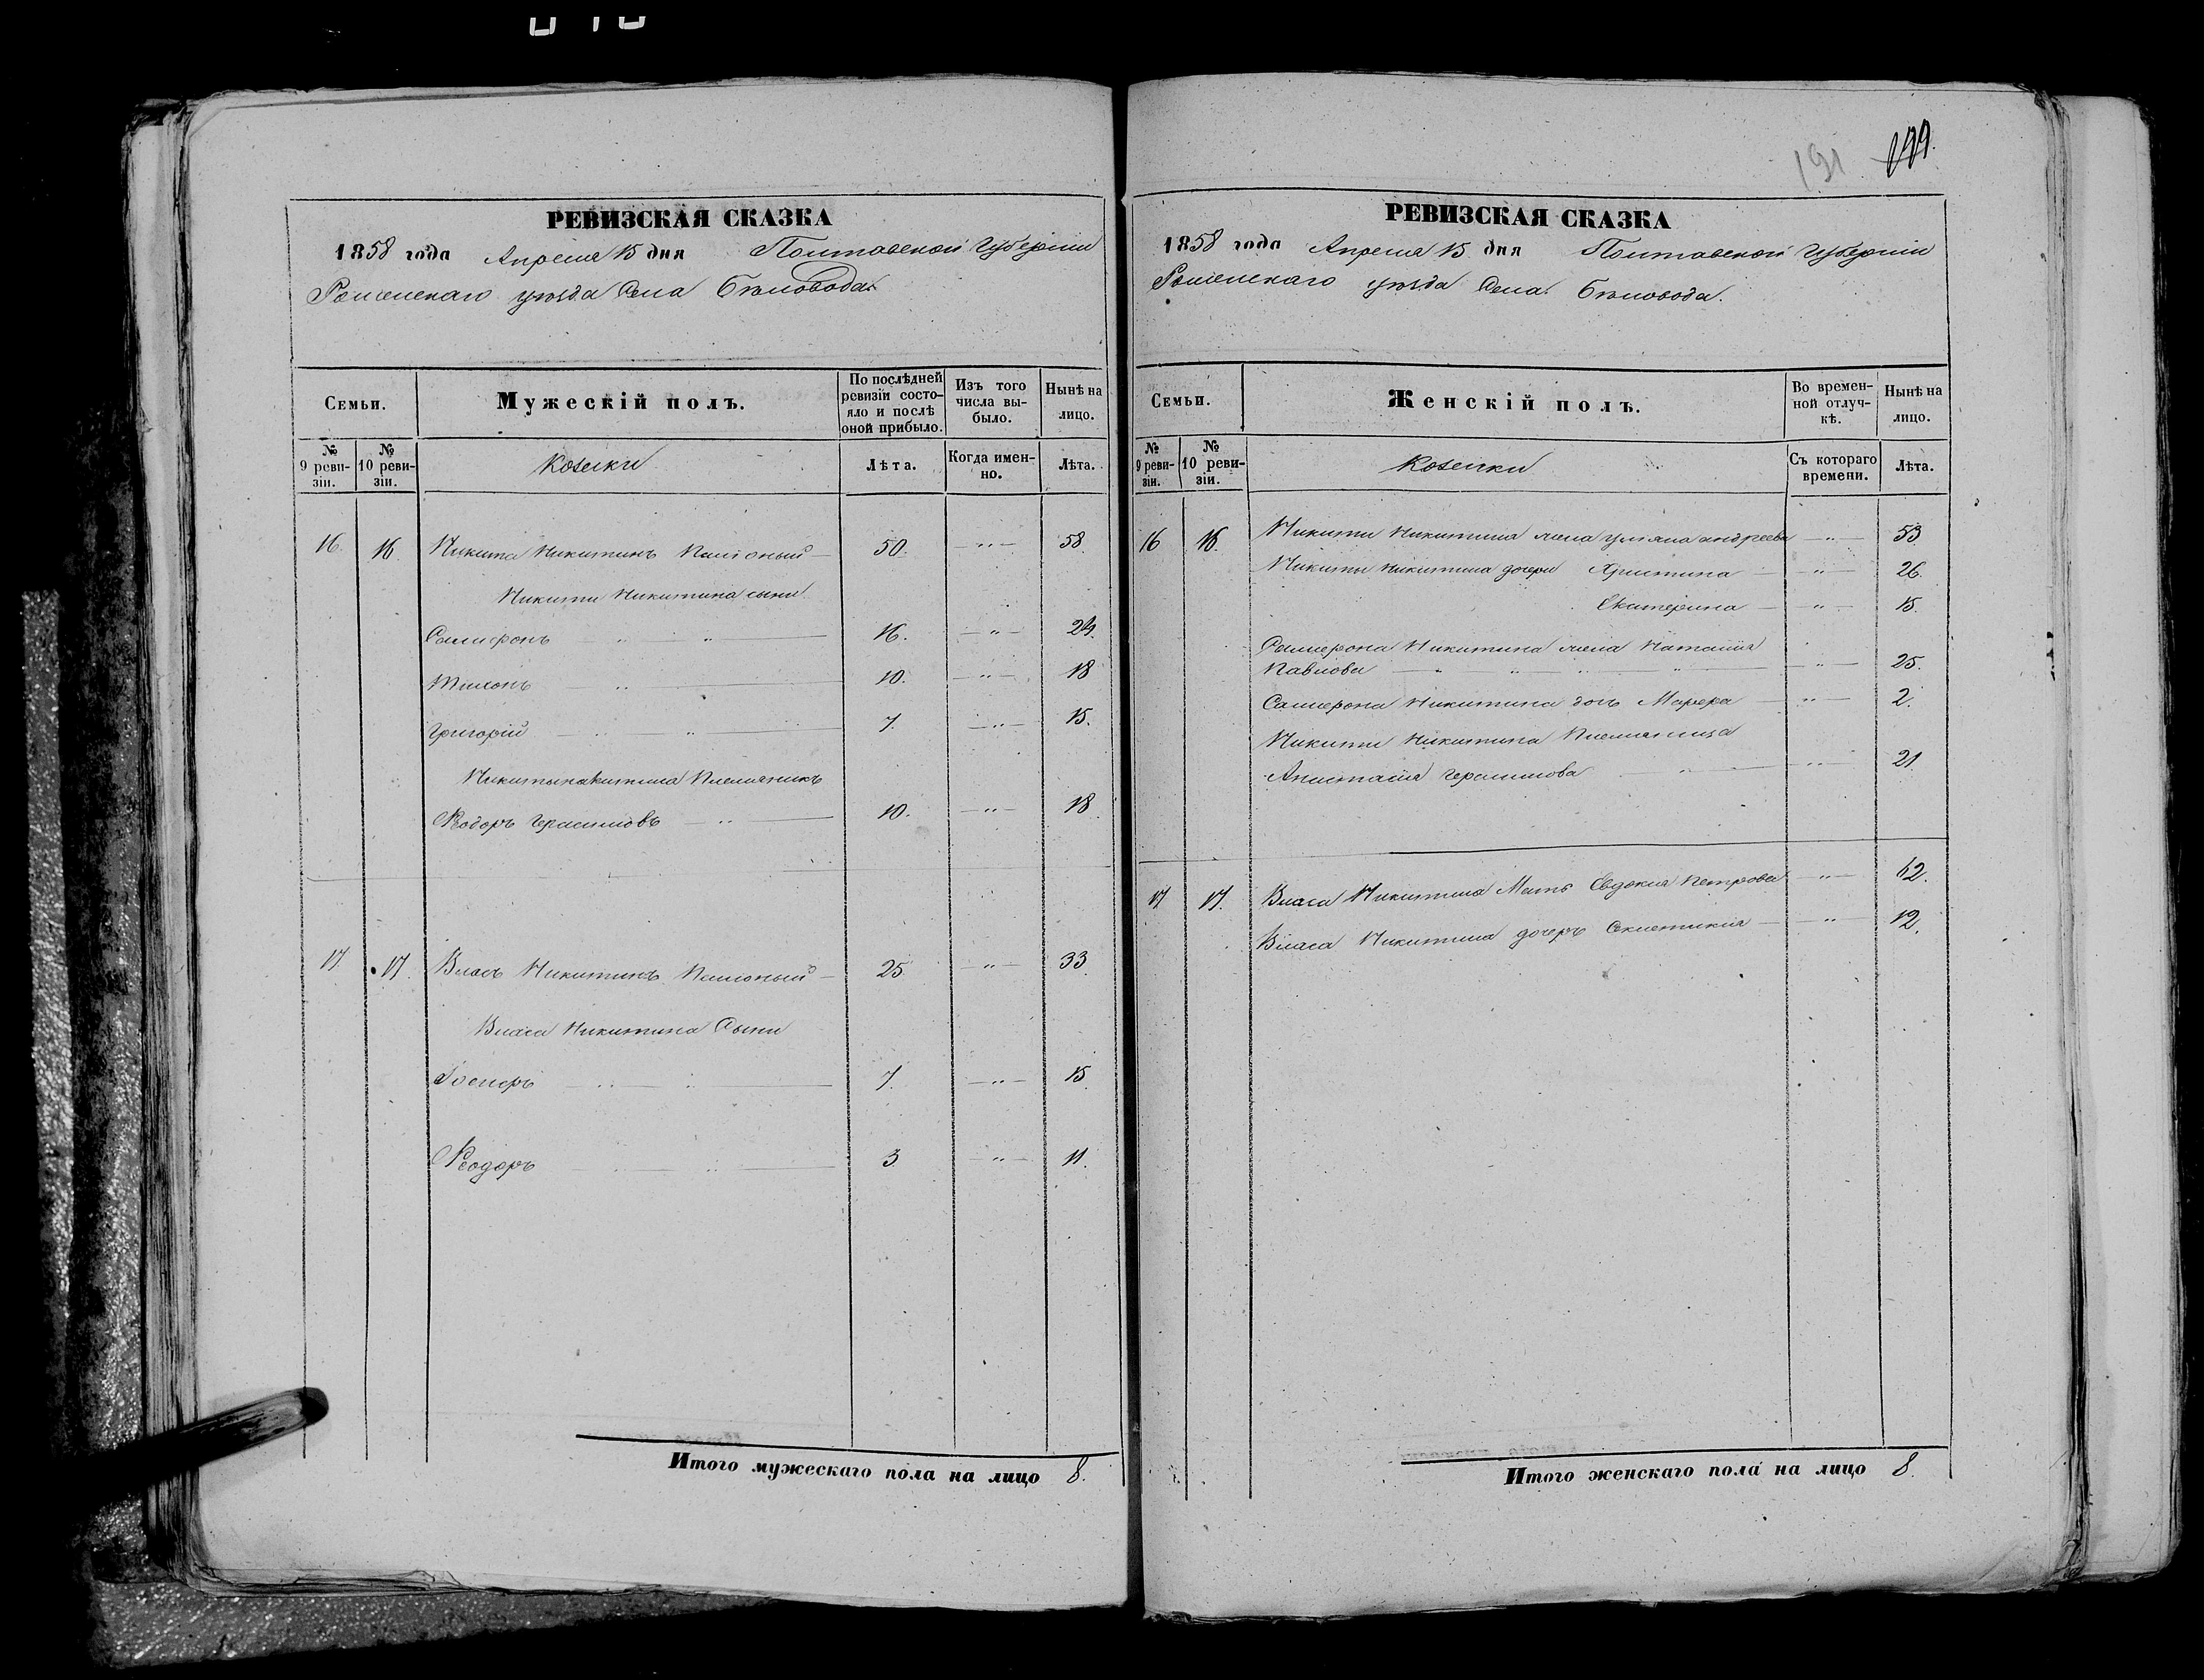 191 199.
РЕВИЗСКАЯ СКАЗКА
1858 года Апреля 15 дня Полтавской Губернии
Роменскаго уѣзда Села Бѣловода.
Семьи.
Мужескій полъ.
По послѣдней ревизіи состояло и послѣ оной прибыло.
Изъ того числа выбыло.
Нынѣ на лицо.
№ 9 ревизіи.
№ 10 ревизіи.
Козаки
Лѣта.
Когда именно.
Лѣта.
16. 16 Никита Никитинъ 50. — " — 58
Никиты Никитина сыны
Самсронъ — " — " — 16. — " — 24.
Тихонъ — " — 10. — " — 18
Григорій — " — " — 7. — " — 15.
Никиты Никитина Племяникъ
Ѳеодоръ Герасимовъ — " — 10. — " — 18
17 17. Власъ Никитинъ 25 — " — 33
Власа Никитина Сыны
— " — " — 7. — " — 15
Ѳеодоръ — " — 3 — " — 11.
Итого мужескаго пола на лицо 8.
РЕВИЗСКАЯ СКАЗКА
1858 года Апреля 15 дня Полтавской Губерніи
Роменскаго уѣзда Села Бѣловода.
Семьи.
Женскій полъ.
Во временной отлучкѣ.
Нынѣ на лицо.
№ 9 ревизіи.
№ 10 ревизіи.
Козачки
Съ котораго времени.
Лѣта.
16 16. Никиты Никитина жена Уляна Андреева — " — 53
Никиты Никитина дочери Христина — " — 26.
Екатерина — " — 15.
Никитина жена Наталія
Павлова — " — " — " — " — 25.
Никитина дочь Марфа — " — 2.
Никиты Никитина Племянница
Анастасія Герасимова — " — " — 21
17 17. Власа Никитина Мать Евдокія Петрова — " — 62.
Власа Никитина дочерь — " — 12.
Итого женскаго пола на лицо 8.